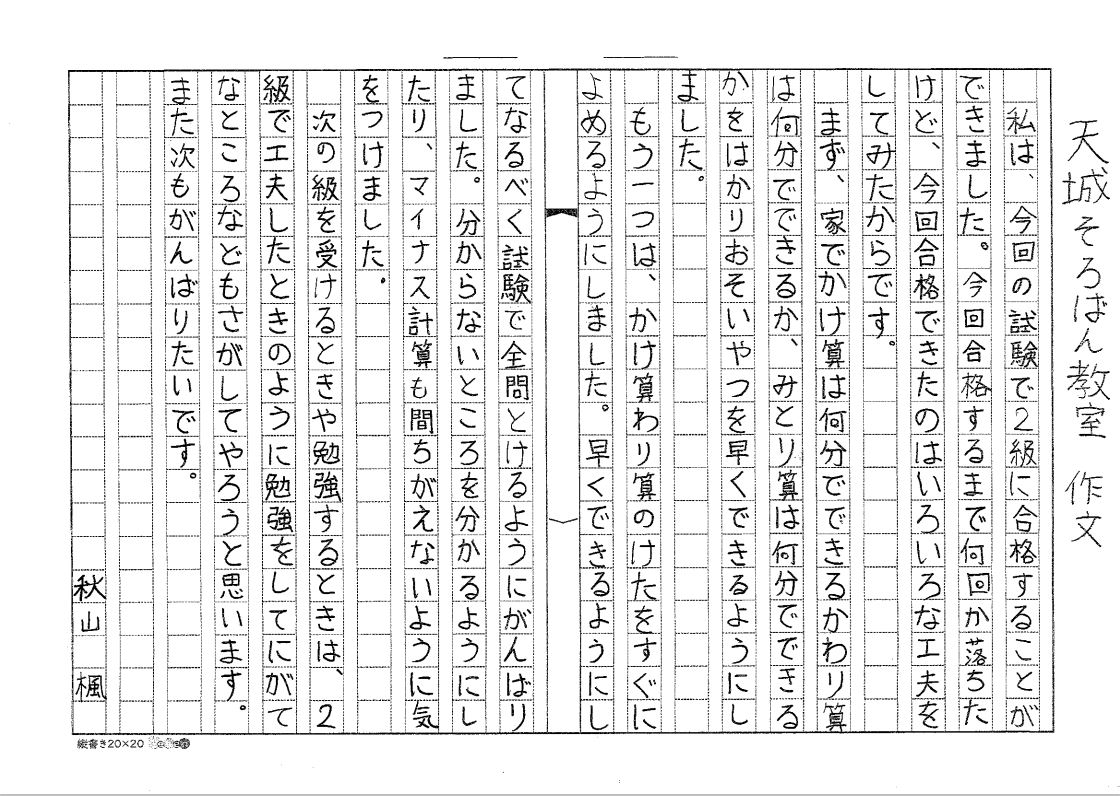 天城そろばん教室　作文
　私は、今回の試験で2級に合格することが
できました。今回合格するまで何回か落ちた
けど、今回合格できたのはいろいろな工夫を
してみたからです。
　まず、家でかけ算は何分でできるかわり算
は何分でできるか、みとり算は何分でできる
かをはかりおそいやつを早くできるようにし
ました。
　もう一つは、かけ算わり算のけたをすぐに
よめるようにしました。早くできるようにし
てなるべく試験で全問とけるようにがんばり
ました。分からないところを分かるようにし
たり、マイナス計算も間ちがえないように気
をつけました．
　次の級を受けるときや勉強するときは、2
級で工夫したときのように勉強をしてにがて
なところなどもさがしてやろうと思います。
また次もがんばりたいです。
秋山　楓
縦書き20×20